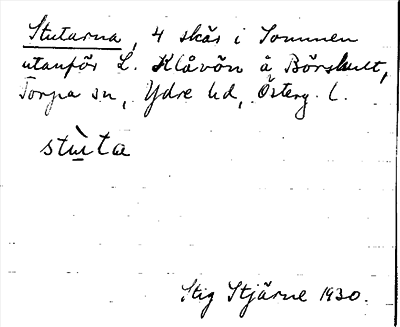 Stutarna, 4 skär i Sommen
utanför L. Klåvön å Börshult,
Torpa sn, Ydre hd, Österg. l.
stu̠̇ta
Stig Stjärne 1930.